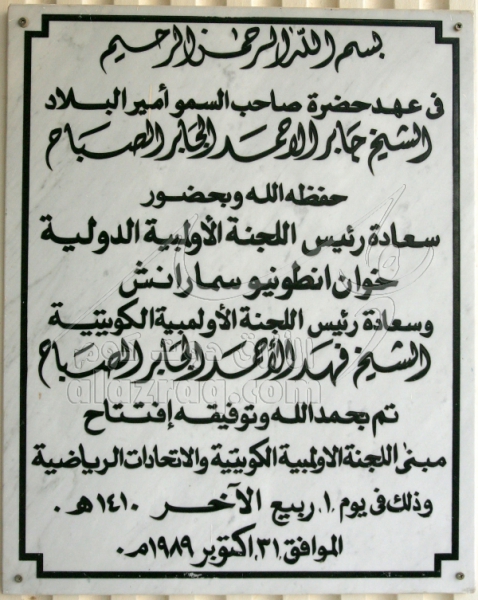 بسم الله الرحمن الرحيم
فى عهد حضرة صاحب السمو أمير البلاد
الشيخ جابر الاحمد الجابر الصباح
حفظه الله وبحضور
سعادة رئيس اللجنة الأولمبية الدولية
خوان انطونيو سمارانش
وسعادة رئيس اللجنة الأولمبية الكويتية
الشيخ فهد الأحمد الجابر الصباح
تم بحمد الله وتوفيقه إفتتاح
مبنى اللجنة الاولمبية الكويتية والاتحادات الرياضية
وذلك فى يوم ١٠ ربيع الآخر ١٤١٠هـ٠
الموافق ٣١ اكتوبر ١٩٨٩م٠
alazraq.com